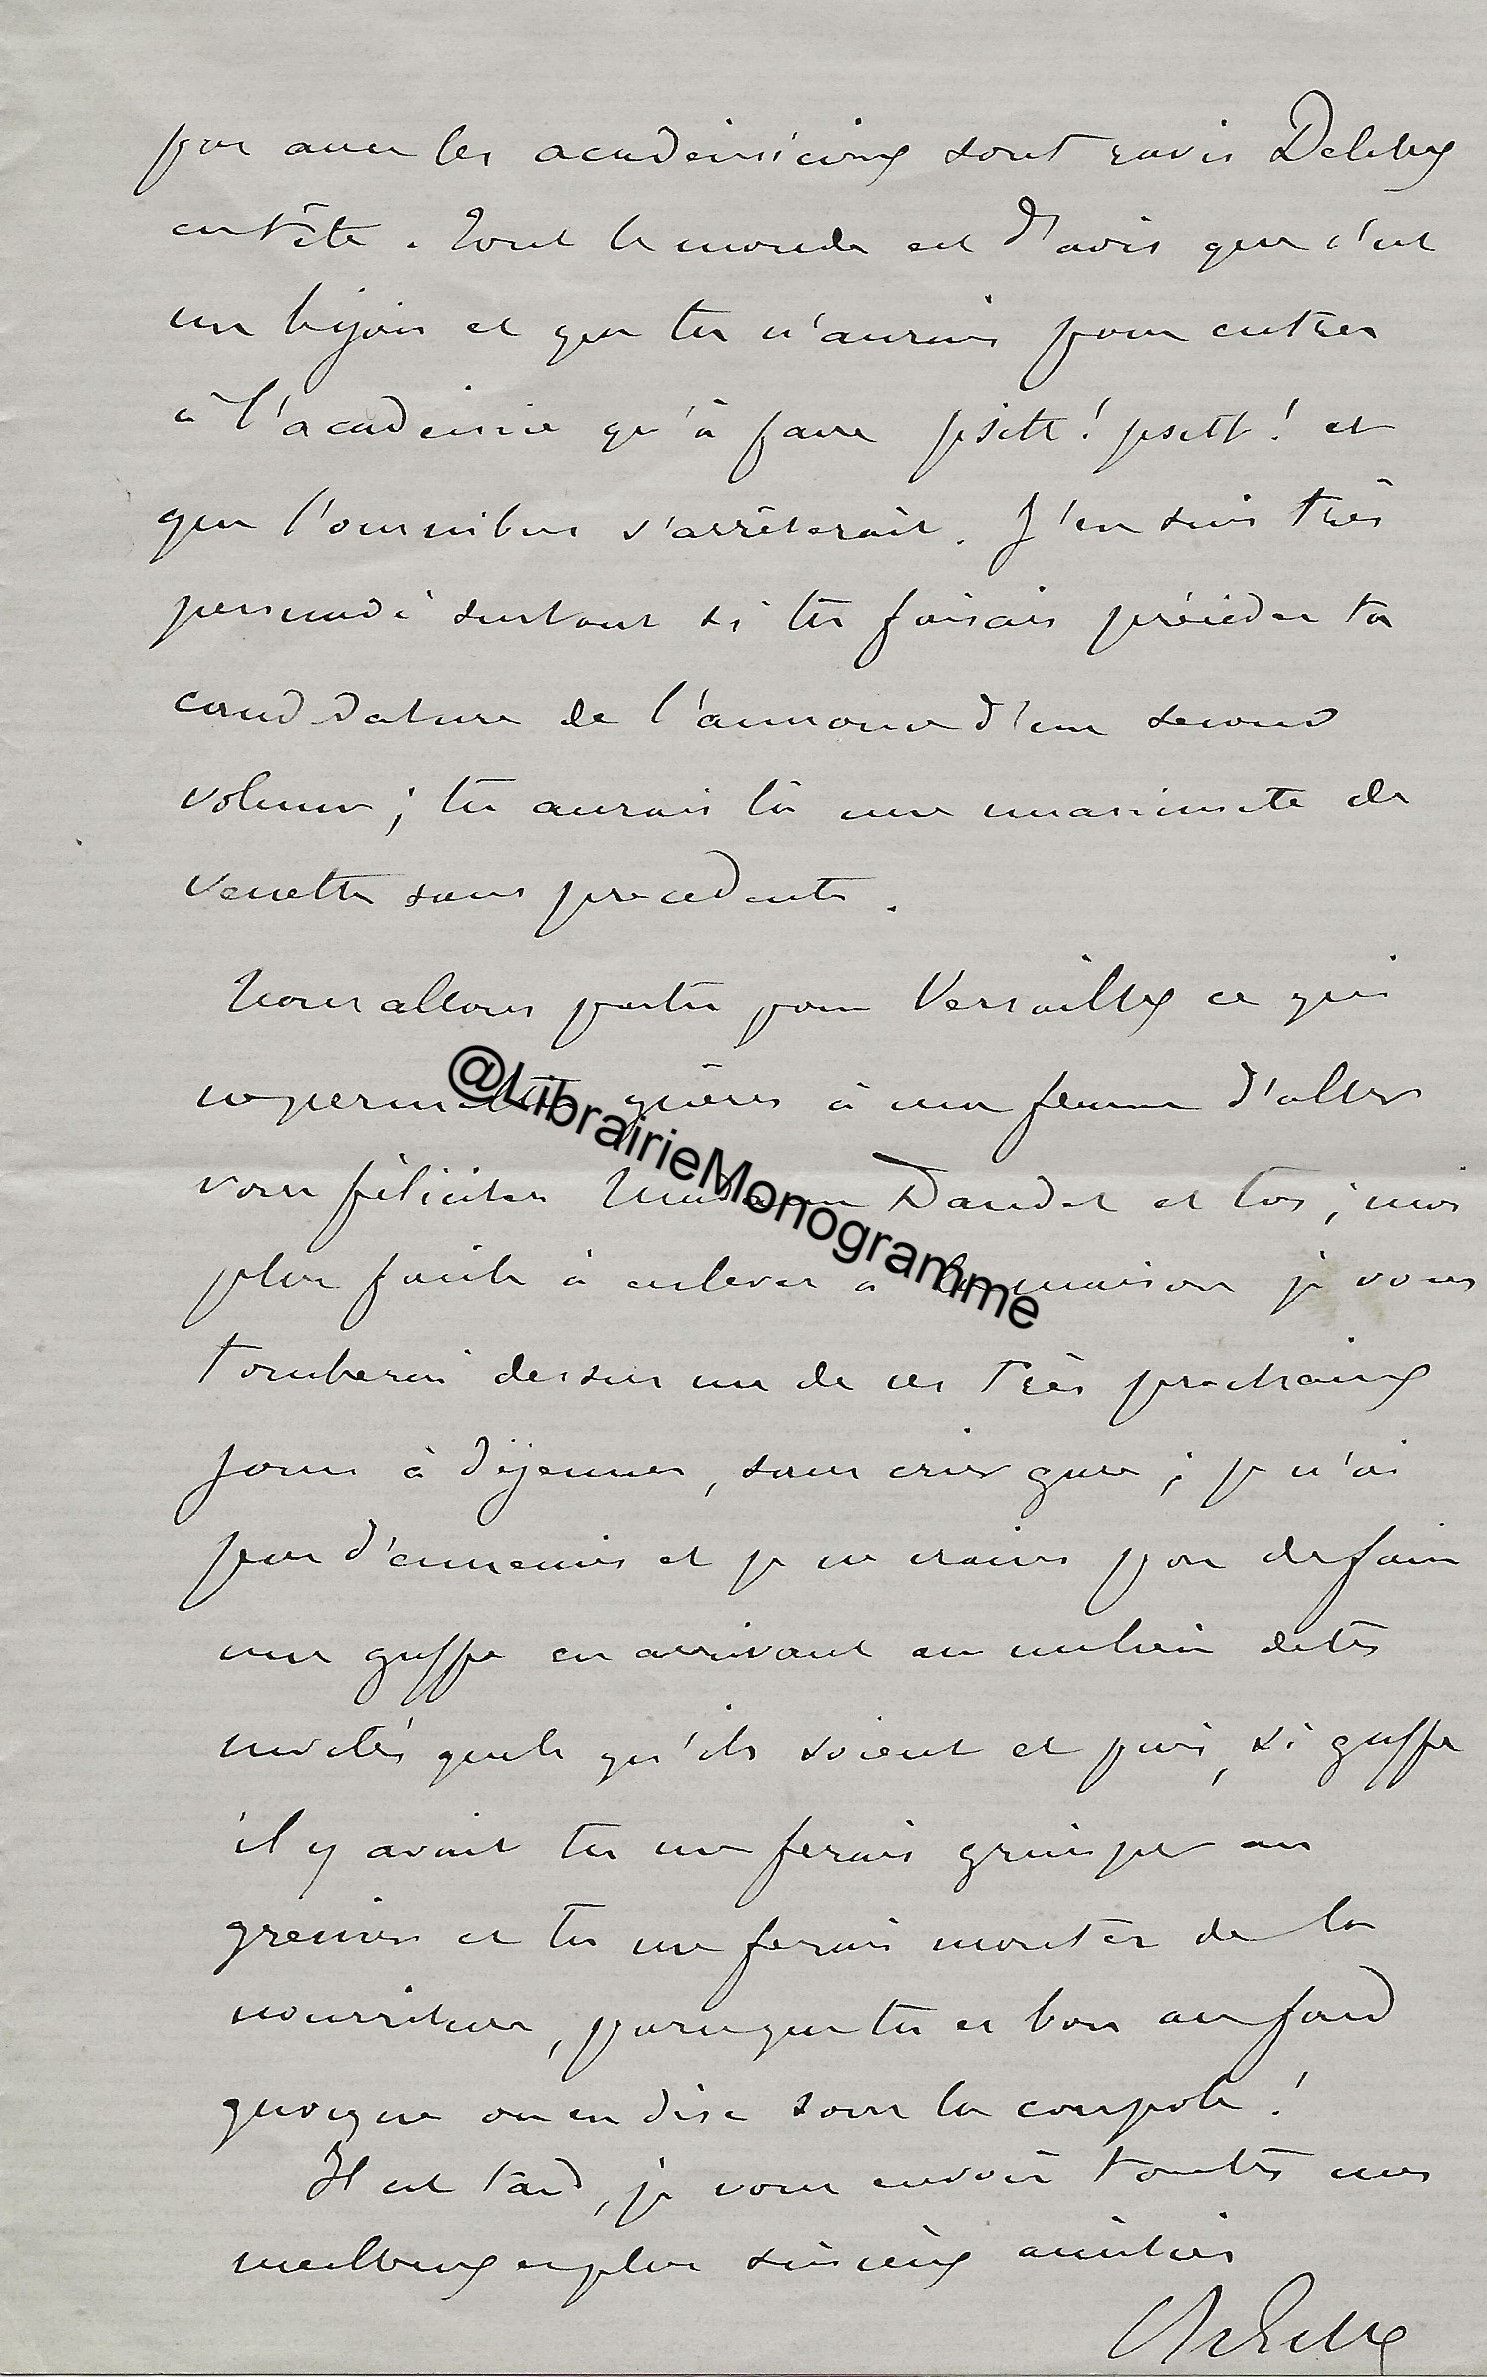 par avec les académiciens sont ravis Delibes
en tête. Tout le monde est d'avis que c'est
un bijou et que tu n'aurais pour entrer
à l'académie qu'à faire psitt! psitt! et
que l'omnibus s'arrêterait. J'en suis très
persuadé surtout si tu faisais précéder ta
candidature de l'annonce d'un second
volume; tu aurais là une unanimité de
venette sans précédents.
Nous allons partir pour Versailles ce qui
ne permettra guères à ma femme d'aller
vous féliciter Madame Daudet et toi; moi
plus facile à enlever à la maison je vous
tomberai dessus un de ces très prochains
jours à déjeuner, sans crier gare; je n'ai
pas d'ennemis et je ne crains pas de faire
une gaffe en arrivant au milieu de tes
invités quels qu'ils soient et puis, si gaffe
il y avait tu me ferais grimper au
grenier et tu me ferais monter de la
nourriture, parceque tu es bon au fond
quoique on en dise sous la coupole!
Il est tard, je vous envoie toutes mes
meilleures et plus sincères amitiés
@LibrairieMonogramme